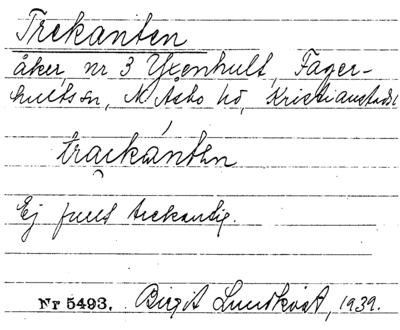 Trekanten
åker, nr 3 Yxenhult, Fager-
hults sn, N. Åsbo hd, Kristianstads l
traikánten
Ej fullt trekantig.
Nr 5493. Birgit Lundkvist, 1939.